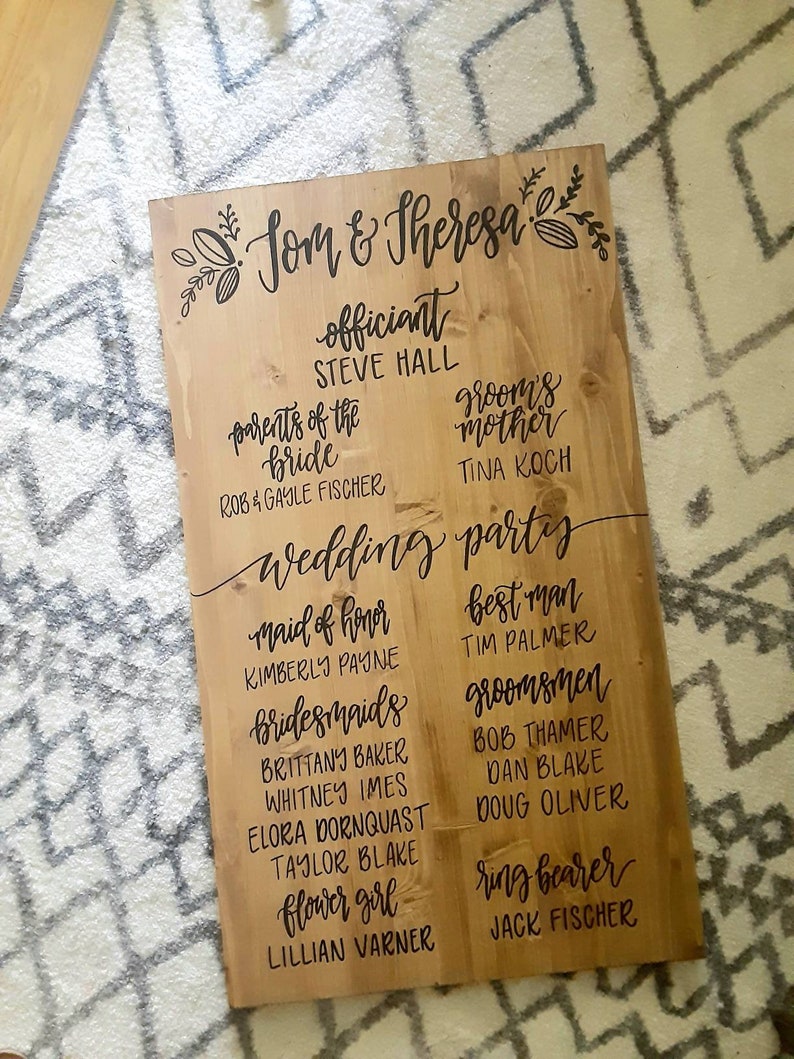 Tom & Theresa
officiant
STEVE HALL
parents of the
bride
ROB & GAYLE FISCHER
groom's
mother
TINA KOCH
wedding party
maid of honor
KIMBERLY PAYNE
bridesmaids
BRITTANY BAKER
WHITNEY IMES
ELORA DORNQUAST
TAYLOR BLAKE
flower girl
LILLIAN VARNER
best man
TIM PALMER
groomsmen
BOB THAMER
DAN BLAKE
DOUG OLIVER
ring bearer
JACK FISCHER